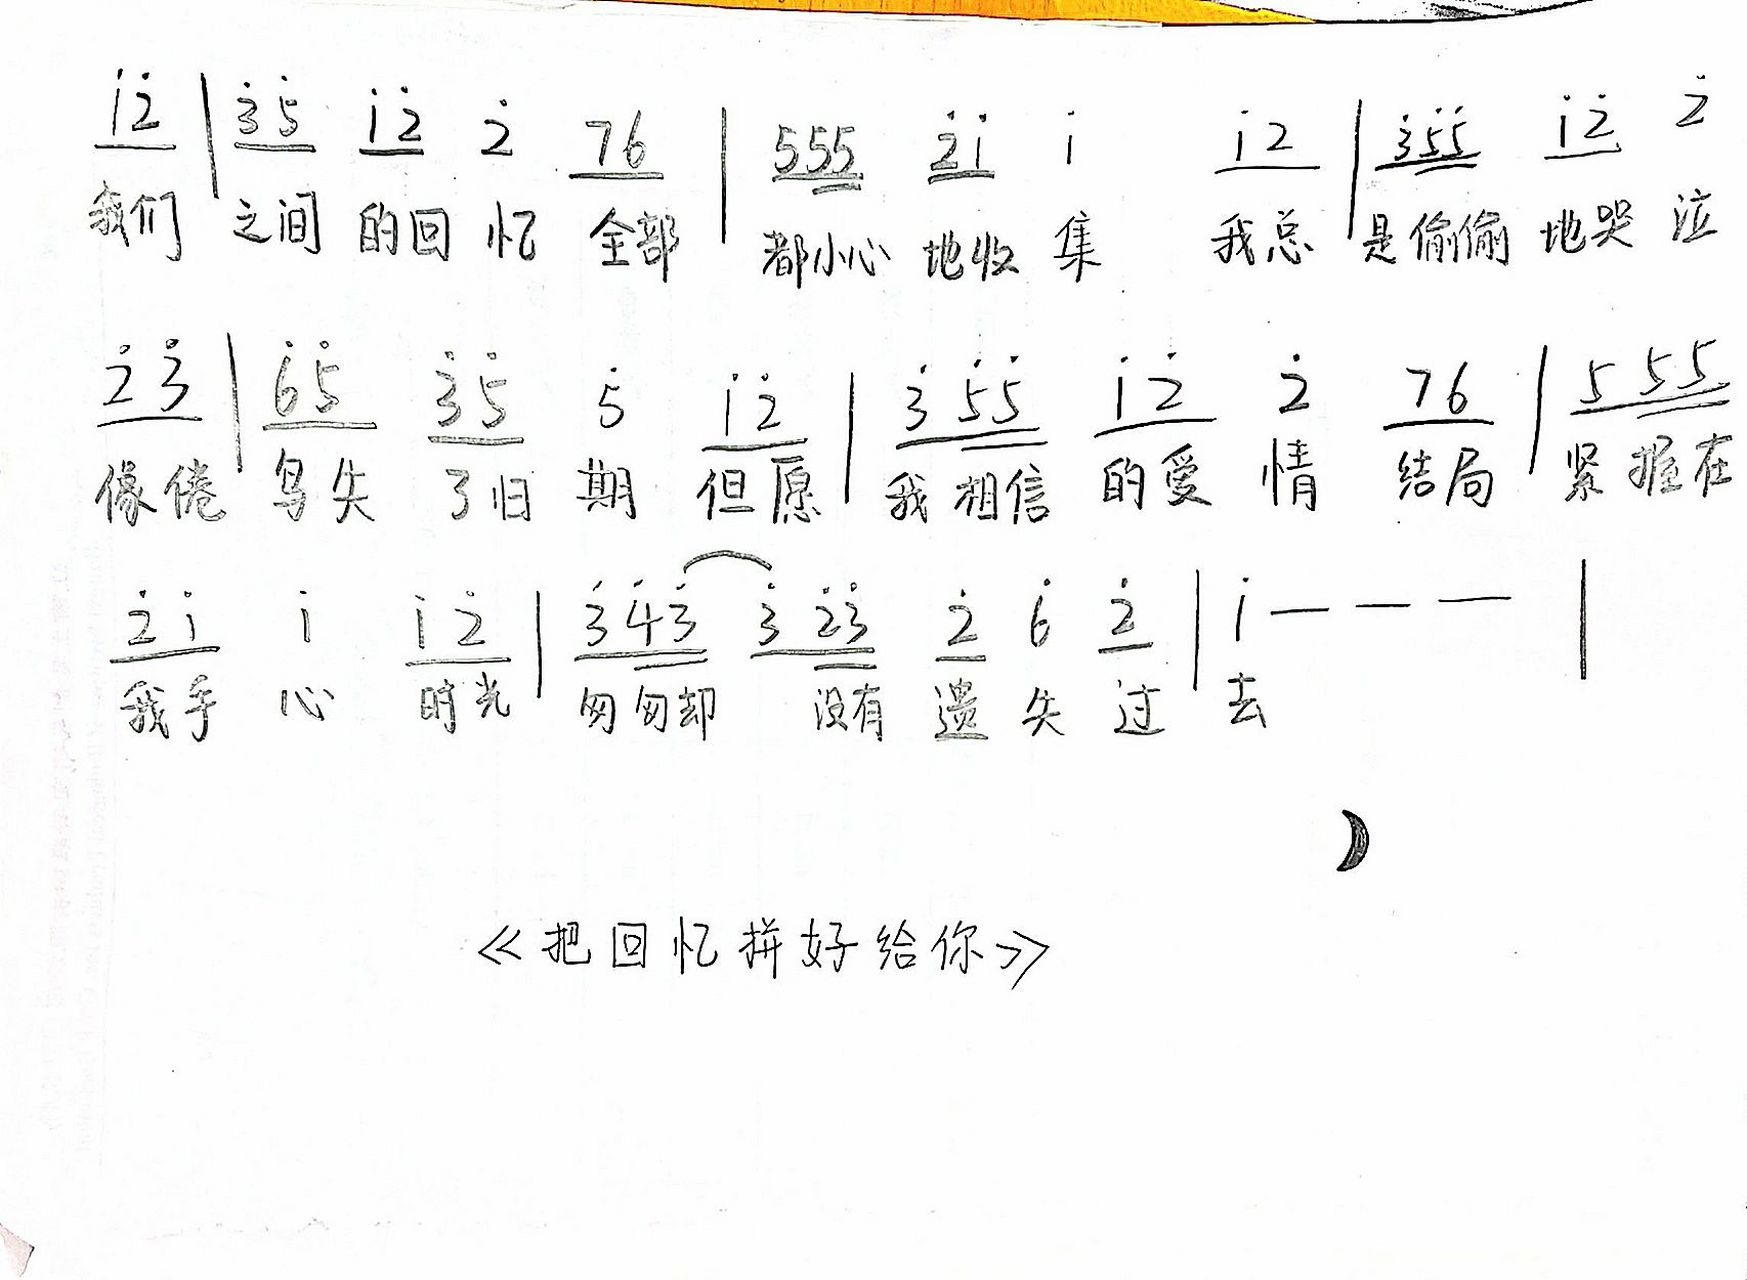 i̇ 2̇ | 3̇ 5̇ i̇ 2̇ 2̇ 7 6 | 5 5 5 2̇ i̇ i̇ i̇ 2̇ | 3̇ 5̇ 5̇ i̇ 2̇ 2̇
我们 之间 的回 忆 全部 都小心 地收 集 我总 是偷偷 地哭 泣
2̇ 3̇ | 6̇ 5̇ 3̇ 5̇ 5̇ i̇ 2̇ | 3̇ 5̇ 5̇ i̇ 2̇ 2̇ 7 6 | 5 5 5
像倦 鸟失 了归 期 但愿 我相信 的爱 情 结局 紧握在
2̇ i̇ i̇ i̇ 2̇ | 3̇ 4̇ 3̇ 3̇ 2̇ 3̇ 2̇ 6̇ 2̇ | i̇ — — — |
我手 心 时光 匆匆却 没有 遗 失 过 去
《把回忆拼好给你》